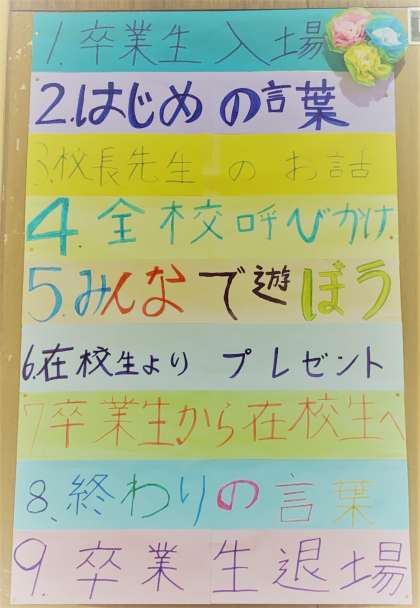 1.卒業生 入場
2.はじめの言葉
3.校長先生 の お話
4.全校呼びかけ
5.みんなで遊ぼう
6.在校生より プレゼント
7.卒業生から在校生へ
8、終わりの言葉
9.卒業生退場